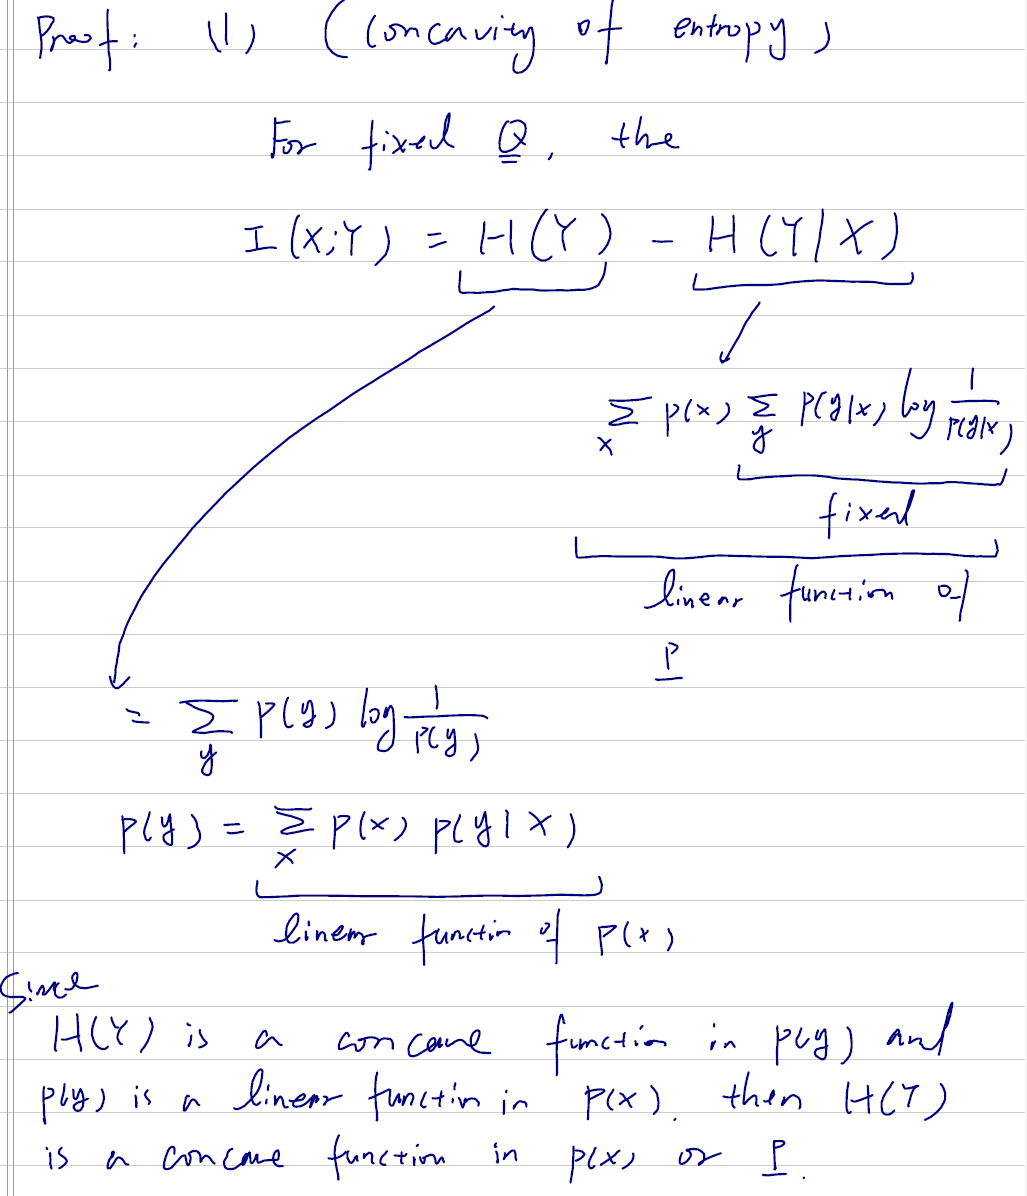 Proof: (1) (Concavity of entropy)
For fixed Q, the
I(X;Y) = H(Y) - H(Y|X)
∑_x p(x) ∑_y P(y|x) log 1/P(y|x)
fixed
linear function of
P
= ∑_y P(y) log 1/P(y)
P(y) = ∑_x P(x) P(y|x)
linear function of P(x)
Since
H(Y) is a concave function in p(y) and
p(y) is a linear function in P(x). then H(Y)
is a concave function in p(x) or P.